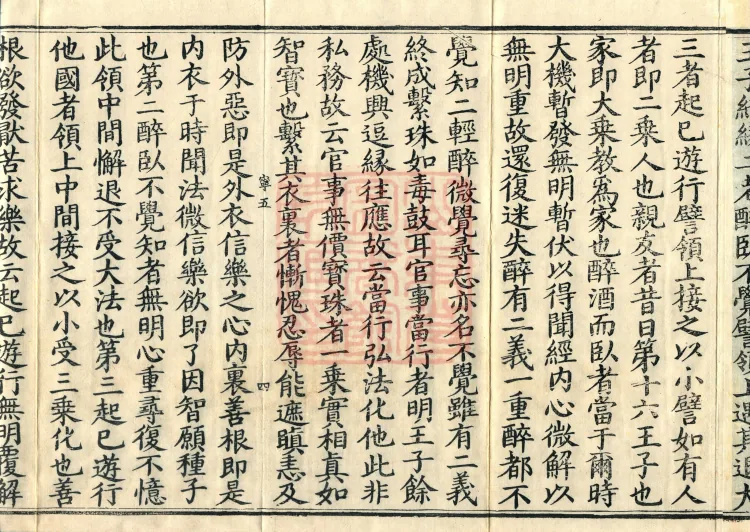 醉臥不覺譬領上
三者起已遊行譬領上接之以小譬如有人
者即二乗人也親友者昔日第十六王子也
家即大乗教爲家也醉酒而臥者當于爾時
大機暫發無明暫伏以得聞經内心微解以
無明重故還復迷失醉有二義一重醉都不
覺知二輕醉微覺尋忘亦名不覺雖有二義
終成繫珠如毒鼓耳官事當行者明王子餘
處機興逗緣往應故云當行弘法化他此非
私務故云官事無價寳珠者一乗實相眞如
智寳也繫其衣裏者慚愧忍辱能遮瞋恚及
寧五
四
防外惡即是外衣信樂之心内裏善根即是
内衣于時聞法微信樂欲即了因智願種子
也第二醉臥不覺知者無明心重尋復不憶
此領中間懈退不受大法也第三起已遊行
他國者領上中間接之以小受三乗化也善
根欲發猒苦求樂故云起已遊行無明覆解